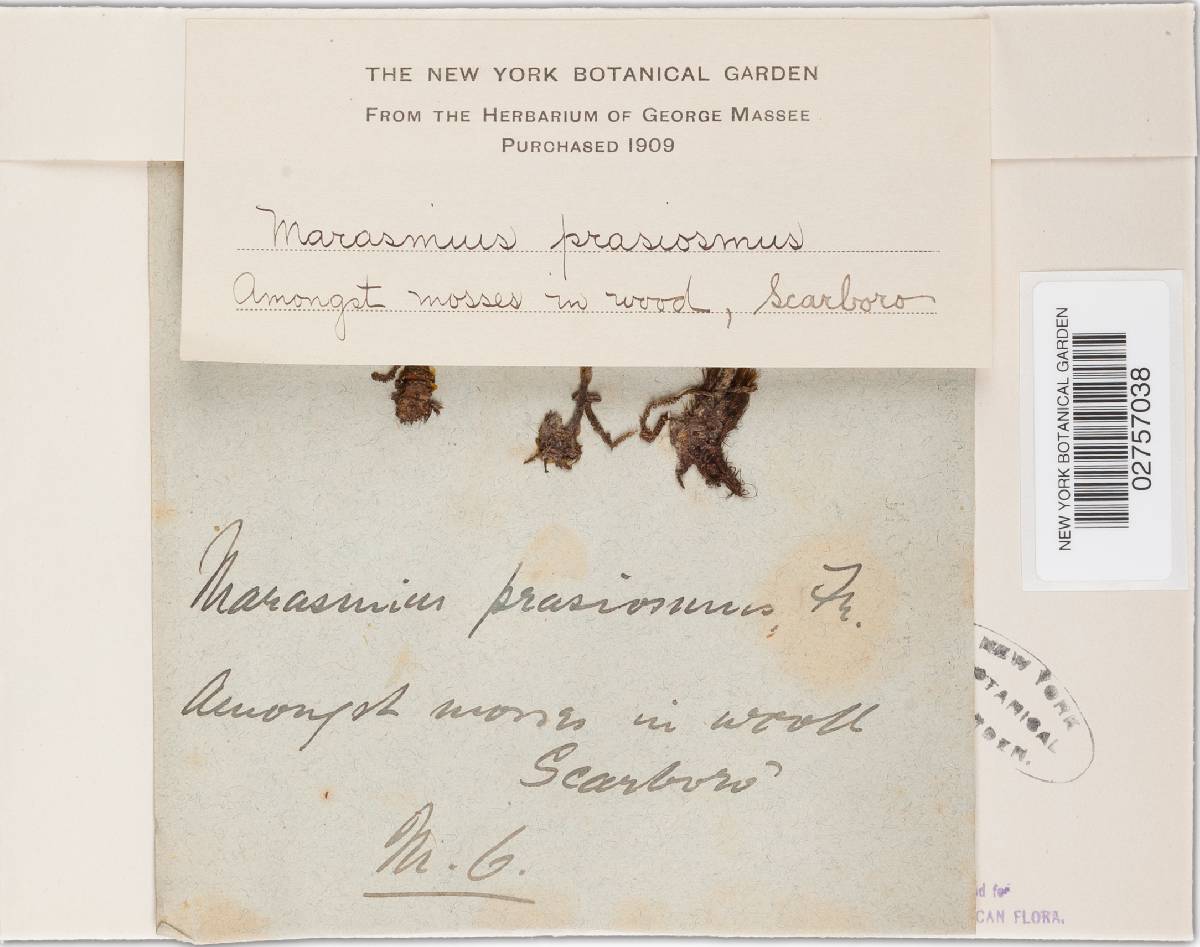 THE NEW YORK BOTANICAL GARDEN
FROM THE HERBARIUM OF GEORGE MASSEE
PURCHASED 1909
Marasmius prasiosmus
Amongst mosses in wood, Scarboro
NEW YORK BOTANICAL GARDEN
02757038
Marasmius prasiosmus, Fr.
Amongst mosses in wood
Scarboro'
M. C.
NEW YORK
OTANICAL
RDEN.
d for
CAN FLORA.